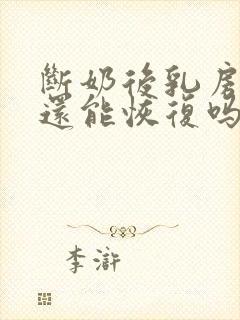 斷奶後乳房
還能恢復吗
李滸